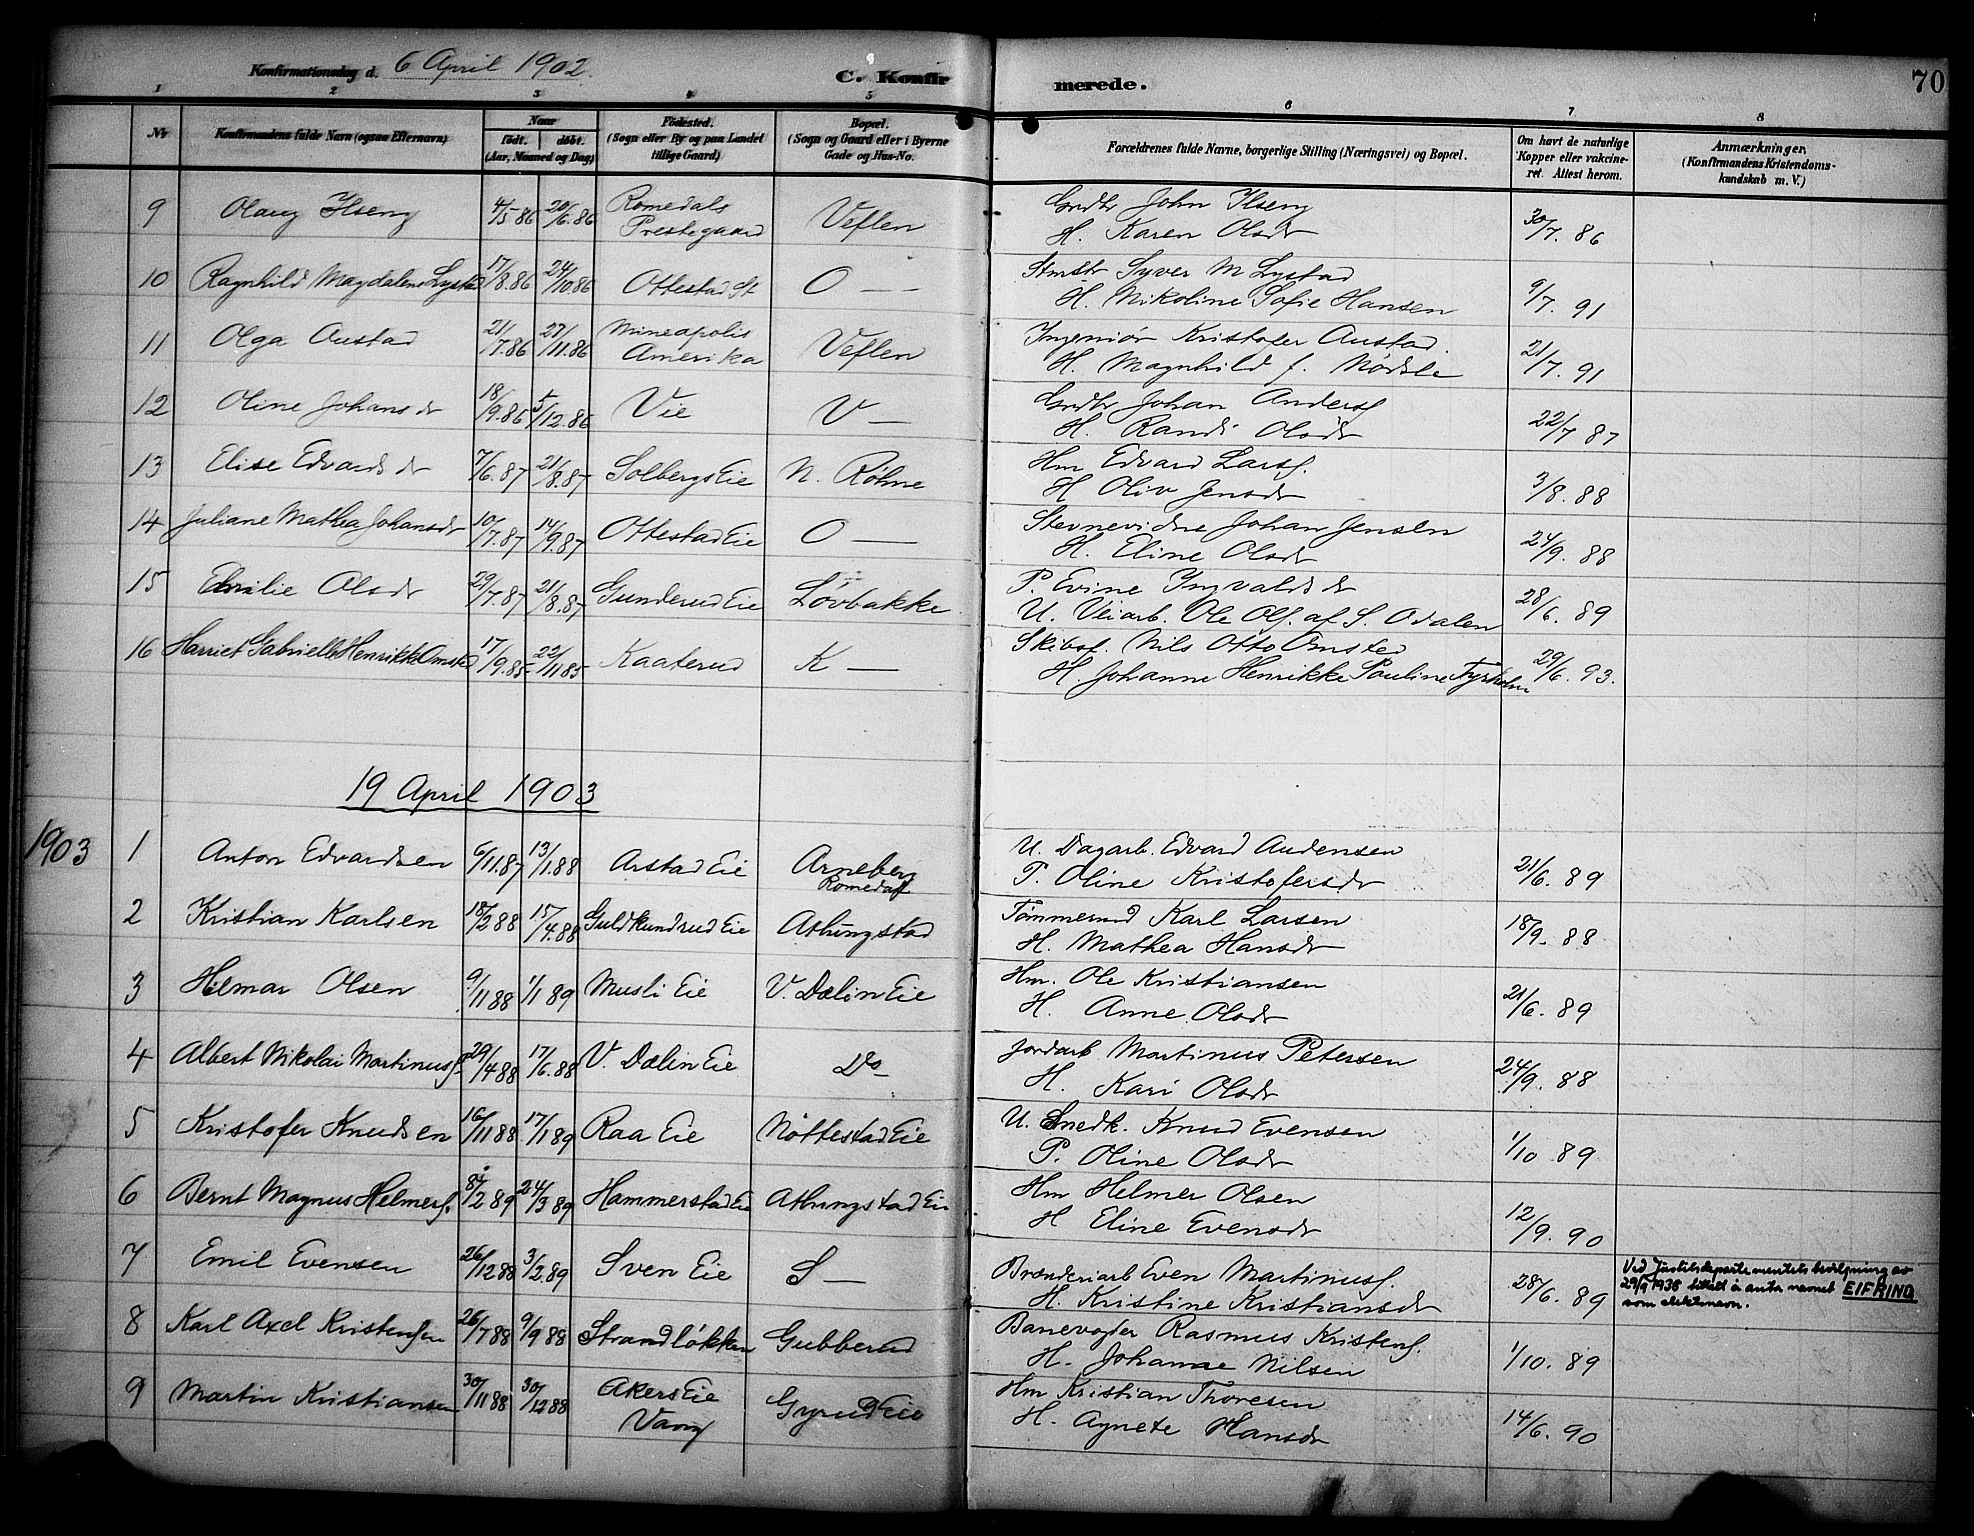 Konfirmationsdag d. 6 April 1902.
C. Konfirmerede.
70
1 2 3 4 5 6 7 8
Nr
Konfirmandens fulde Navn (ogsaa Efternavn)
Naar
födt. döbt.
(Aar, Maaned og Dag)
Födested.
(Sogn eller By og paa Landet
tillige Gaard)
Bopæl.
(Sogn og Gaard eller i Byerne
Gade og Hus-No.
Forældrenes fulde Navne, borgerlige Stilling (Næringsvei) og Bopæl.
Om havt de naturlige
Kopper eller vakcine-
ret. Attest herom.
Anmærkninger.
(Konfirmandens Kristendoms-
kundskab m. V.)
9 Olaug Ilseng 4/5 86 20/6.86 Romedals Prestegaard Veflen Grdbr John Ilseng 30/7. 86
H. Karen Olsdr
10 Ragnhild Magdalene Lystad 17/8.86 24/10.86 Ottestad St O — Stmstr Syver M Lystad 9/7. 91
H. Nikoline Sofie Hansen
11 Olga Austad 21/7.86 27/11.86 Mineapolis Amerika Veflen Ingeniör Kristofer Austad. 21/7. 91
H. Magnhild f. Nödsle
12 Oline Johansdr 18/9.86 5/12.86 Vie V — Grdbr Johan Andersf 22/7 87
H. Randi Olsdr
13 Elise Edvardsdr 7/6.87 21/8.87 Solbergs Eie N. Röhne Hm Edvard Larsf. 3/8. 88
H Oliv Jensdr
14 Juliane Mathea Johansdr 10/7.87 14/9.87 Ottestad Eie O — Stevnevidne Johan Jensen 24/9. 88
H. Eline Olsdr
15 Emilie Olsdr 29/7.87 21/8.87 Gunderud Eie Lövbakke P. Evine Ingvaldsdr 28/6. 89
U. Veiarb. Ole Olf. af S. Odalen
16 Harriet Gabrielle Henrikke Omsted 17/9.85 22/11 85 Kaaterud K — Skibsf. Nils Otto Omsted 29/6. 93.
H. Johanne Henrikke Pauline Fyrholm
19 April 1903
1903
1 Anton Edvardsen 6/11.87 13/1.88 Arstad Eie Arneberg Romedal U. Dagarb. Edvard Andensen 21/6. 89
P. Oline Kristofersdr
2 Kristian Karlsen 18/2 88 15/4.88 Guldkundrud Eie Athungstad Tömmermd Karl Larsen 18/9. 88
H. Mathea Hansdr
3 Hilmar Olsen 9/11 88 1/1 89 Musli Eie V. Dælin Eie Hm. Ole Kristiansen 21/6. 89
H. Anne Olsdr
4 Albert Nikolai Martinusf 29/4 88 17/6.88 V. Dælin Eie Do Jordarb Martinus Petersen 24/9. 88
H. Kari Olsdr
5 Kristofer Knudsen 16/11 88 17/1 89 Raa Eie Nöttestad Eie U. Snedk. Knud Evensen 1/10 89
P. Oline Olsdr
6 Bernt Magnus Helmerf. 8/2 89 24/3 89 Hammerstad Eie Athungstad Eie Hm Helmer Olsen 12/9. 90
H Eline Evensdr
7 Emil Evensen 26/12 88 3/2.89 Sven Eie S — Brænderiarb Even Martinusf. 28/6. 89
H. Kristine Kristiansdr
Ved Justisdepartementets bevilgning av
29/9 1938 tillatt å anta navnet EIFRING
som slektsnavn.
8 Karl Axel Kristensen 26/7 88 9/9 88 Strandlökken Gubberud Banevogter Rasmus Kristenf. 1/10. 89
H. Johanne Nilsen
9 Martin Kristiansen 30/11 88 30/12 88 Akers Eie Vang Gyrud Eie Hm Kristian Thoresen 14/6. 90
H. Agnete Hansdr